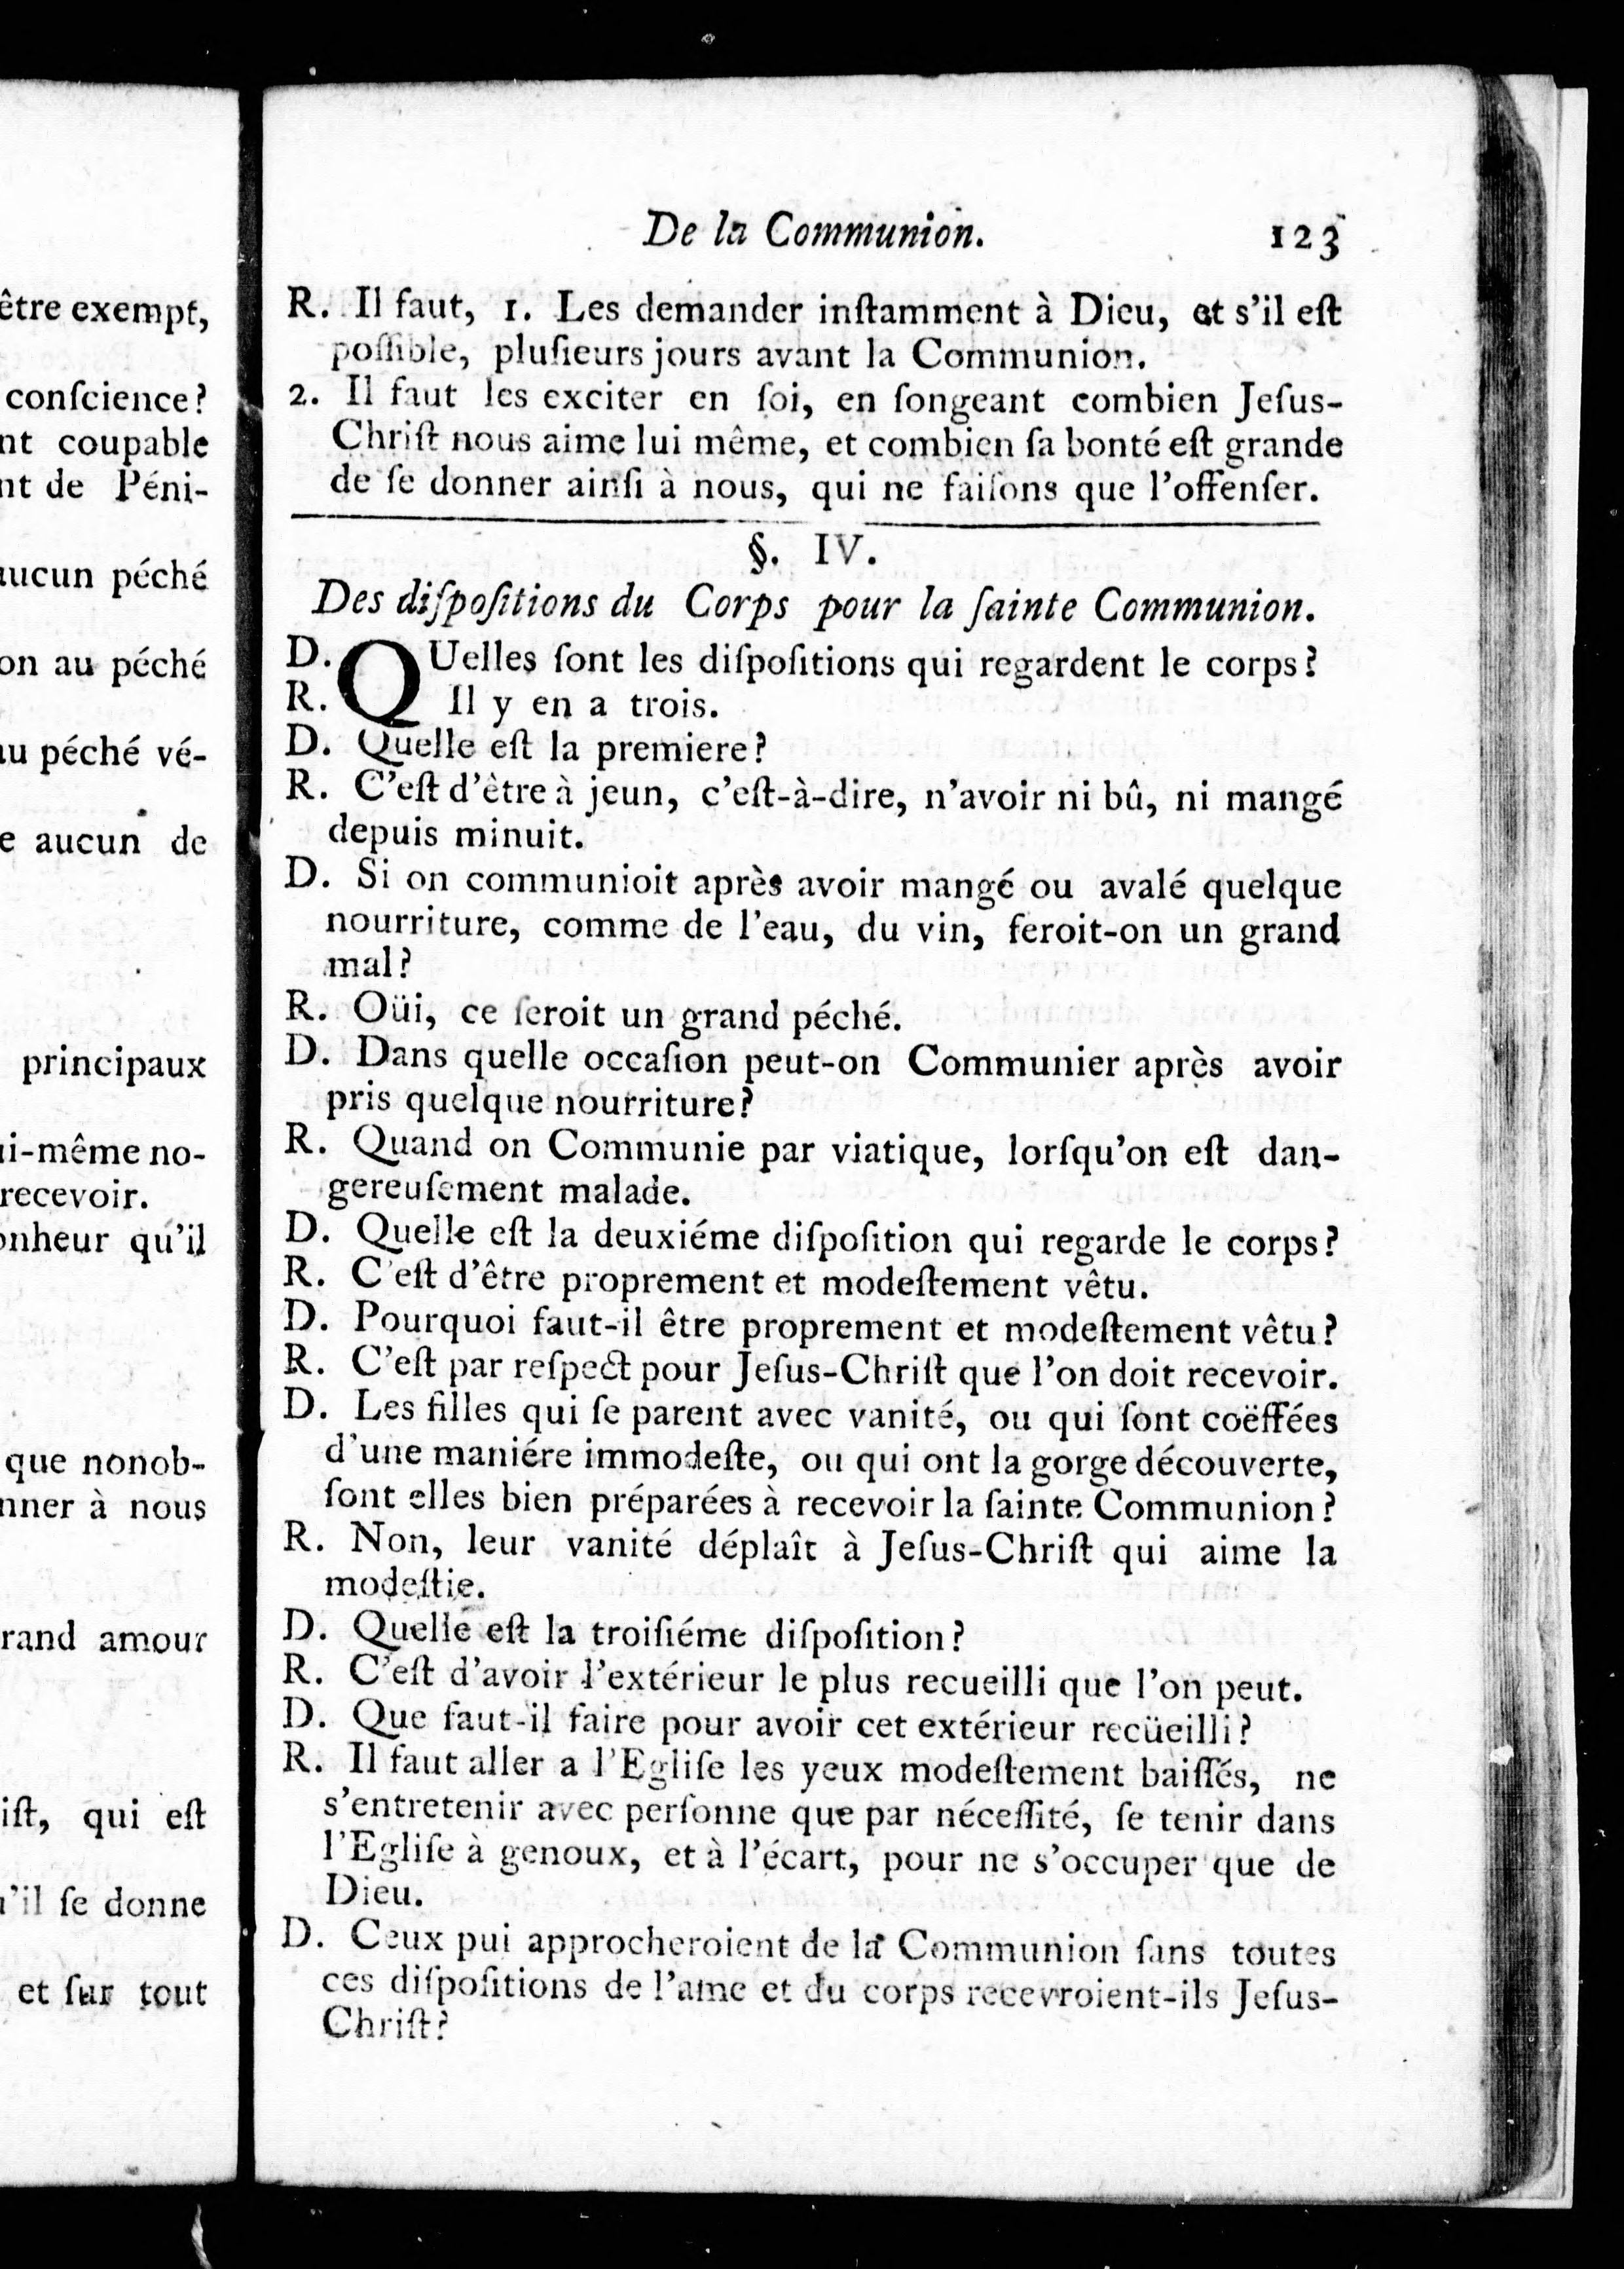 être exempt,
conſcience?
nt coupable
nt de Péni-
aucun péché
on au péché
au péché vé-
e aucun de
principaux
ui-même no-
recevoir.
onheur qu'il
que nonob-
nner à nous
rand amour
iſt, qui eſt
u'il ſe donne
et ſur tout
De la Communion. 123
R. Il faut, 1. Les demander inſtamment à Dieu, et s'il eſt
poſſible, pluſieurs jours avant la Communion.
2. Il faut les exciter en ſoi, en ſongeant combien Jeſus-
Chriſt nous aime lui même, et combien ſa bonté eſt grande
de ſe donner ainſi à nous, qui ne faiſons que l'offenſer.
§. IV.
Des diſpoſitions du Corps pour la ſainte Communion.
D. QUelles ſont les diſpoſitions qui regardent le corps?
R. Il y en a trois.
D. Quelle eſt la premiere?
R. C'eſt d'être à jeun, c'eſt-à-dire, n'avoir ni bû, ni mangé
depuis minuit.
D. Si on communioit après avoir mangé ou avalé quelque
nourriture, comme de l'eau, du vin, feroit-on un grand
mal?
R. Oüi, ce ſeroit un grand péché.
D. Dans quelle occaſion peut-on Communier après avoir
pris quelque nourriture?
R. Quand on Communie par viatique, lorſqu'on eſt dan-
gereuſement malade.
D. Quelle eſt la deuxiéme diſpoſition qui regarde le corps?
R. C'eſt d'être proprement et modeſtement vêtu.
D. Pourquoi faut-il être proprement et modeſtement vêtu?
R. C'eſt par reſpect pour Jeſus-Chriſt que l'on doit recevoir.
D. Les filles qui ſe parent avec vanité, ou qui ſont coëffées
d'une maniére immodeſte, ou qui ont la gorge découverte,
ſont elles bien préparées à recevoir la ſainte Communion?
R. Non, leur vanité déplaît à Jeſus-Chriſt qui aime la
modeſtie.
D. Quelle eſt la troiſiéme diſpoſition?
R. C'eſt d'avoir l'extérieur le plus recueilli que l'on peut.
D. Que faut-il faire pour avoir cet extérieur recüeilli?
R. Il faut aller a l'Egliſe les yeux modeſtement baiſſés, ne
s'entretenir avec perſonne que par néceſſité, ſe tenir dans
l'Egliſe à genoux, et à l'écart, pour ne s'occuper que de
Dieu.
D. Ceux pui approcheroient de la Communion ſans toutes
ces diſpoſitions de l'ame et du corps recevroient-ils Jeſus-
Chriſt?